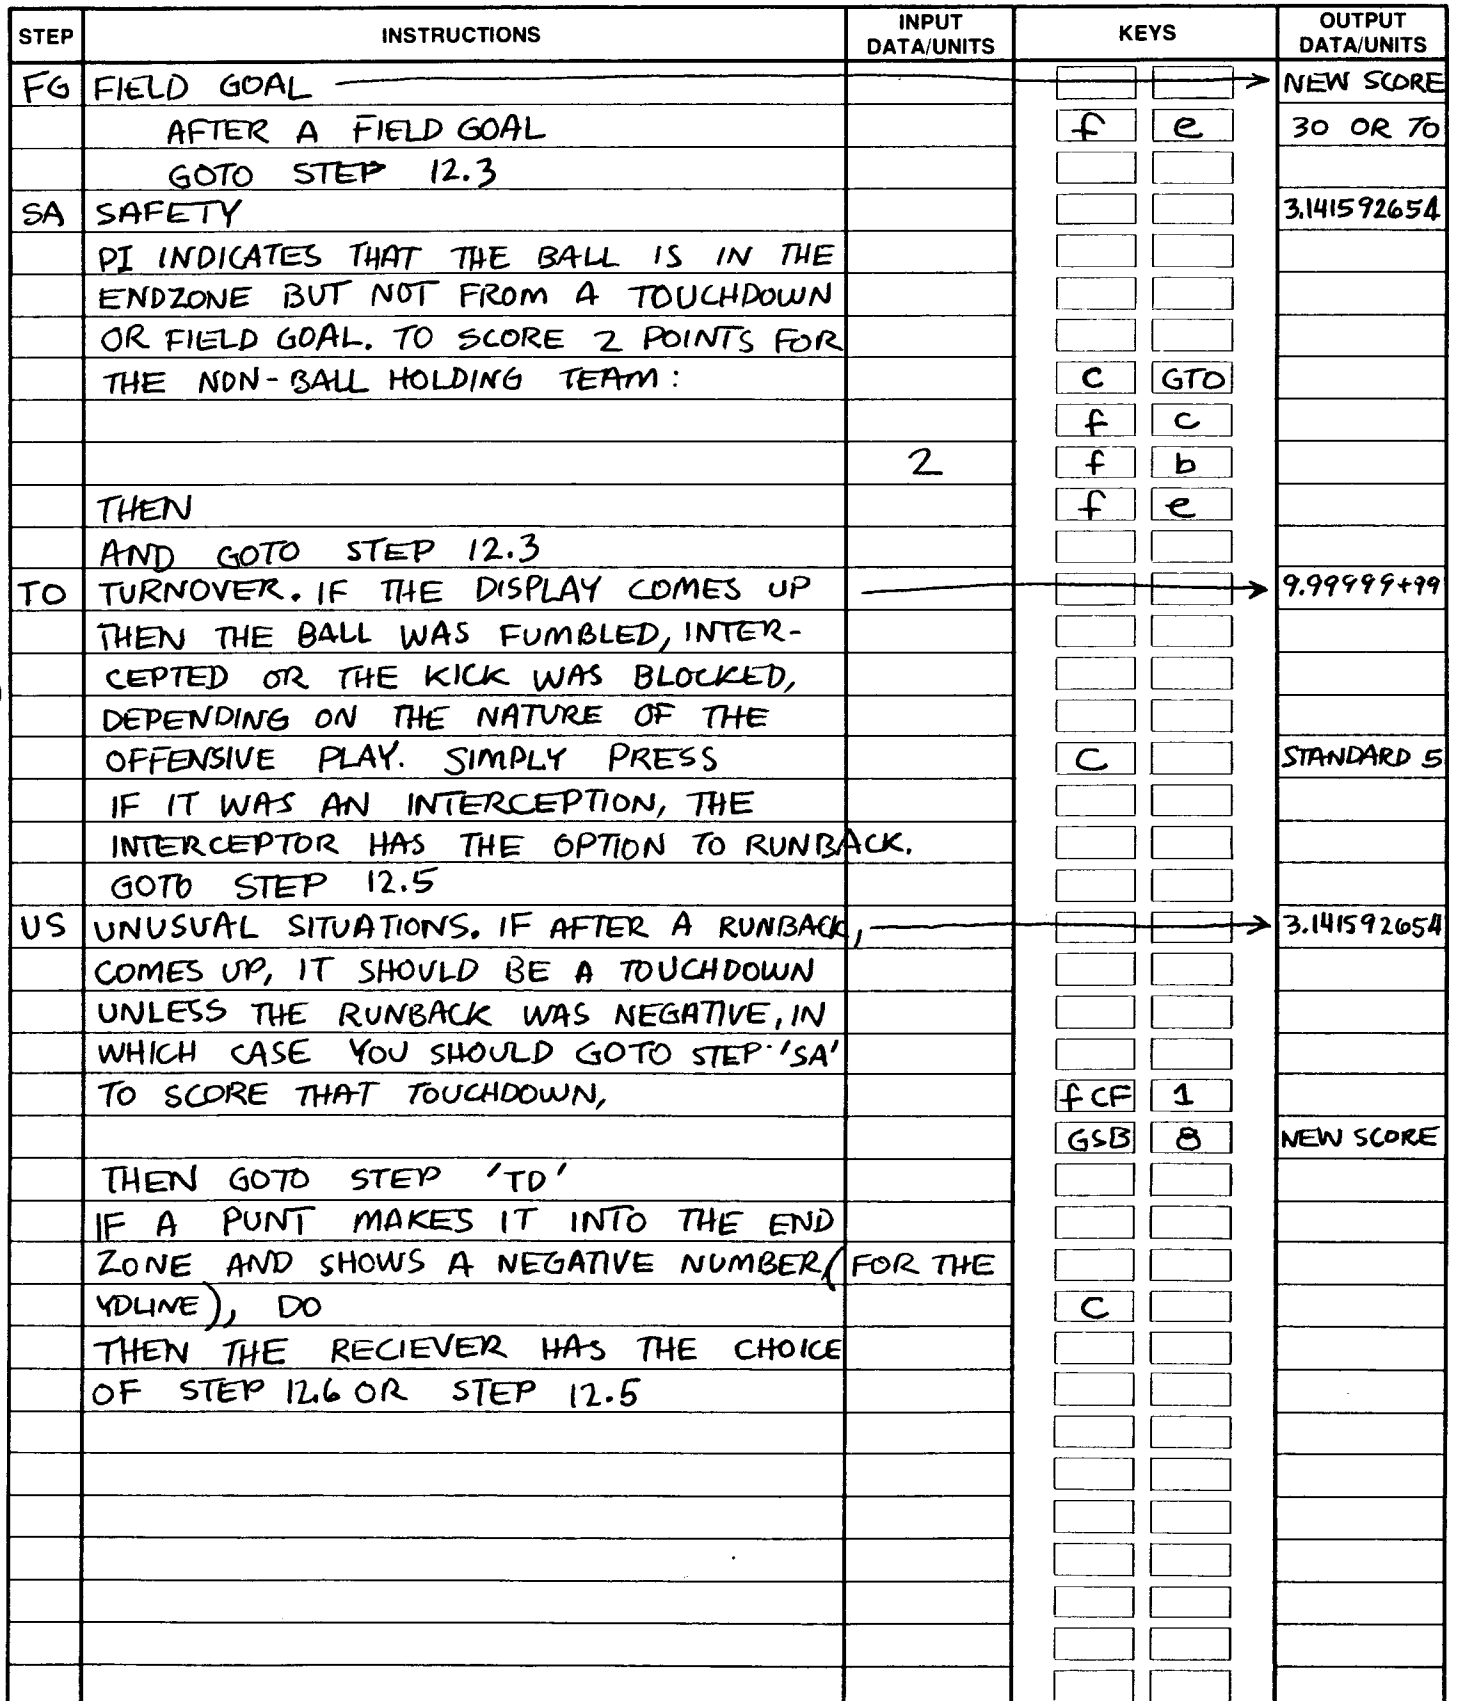 STEP INSTRUCTIONS INPUT DATA/UNITS KEYS OUTPUT DATA/UNITS
FG FIELD GOAL NEW SCORE
AFTER A FIELD GOAL f e 30 OR 70
GOTO STEP 12.3
SA SAFETY 3.141592654
PI INDICATES THAT THE BALL IS IN THE
ENDZONE BUT NOT FROM A TOUCHDOWN
OR FIELD GOAL. TO SCORE 2 POINTS FOR
THE NON-BALL HOLDING TEAM: C GTO
f c
2 f b
THEN f e
AND GOTO STEP 12.3
TO TURNOVER. IF THE DISPLAY COMES UP 9.99999+99
THEN THE BALL WAS FUMBLED, INTER-
CEPTED OR THE KICK WAS BLOCKED,
DEPENDING ON THE NATURE OF THE
OFFENSIVE PLAY. SIMPLY PRESS C STANDARD 5
IF IT WAS AN INTERCEPTION, THE
INTERCEPTOR HAS THE OPTION TO RUNBACK.
GOTO STEP 12.5
US UNUSUAL SITUATIONS. IF AFTER A RUNBACK, 3.141592654
COMES UP, IT SHOULD BE A TOUCHDOWN
UNLESS THE RUNBACK WAS NEGATIVE, IN
WHICH CASE YOU SHOULD GOTO STEP 'SA'
TO SCORE THAT TOUCHDOWN, f CF 1
GSB 8 NEW SCORE
THEN GOTO STEP 'TD'
IF A PUNT MAKES IT INTO THE END
ZONE AND SHOWS A NEGATIVE NUMBER (FOR THE
YDLINE), DO C
THEN THE RECIEVER HAS THE CHOICE
OF STEP 12.6 OR STEP 12.5